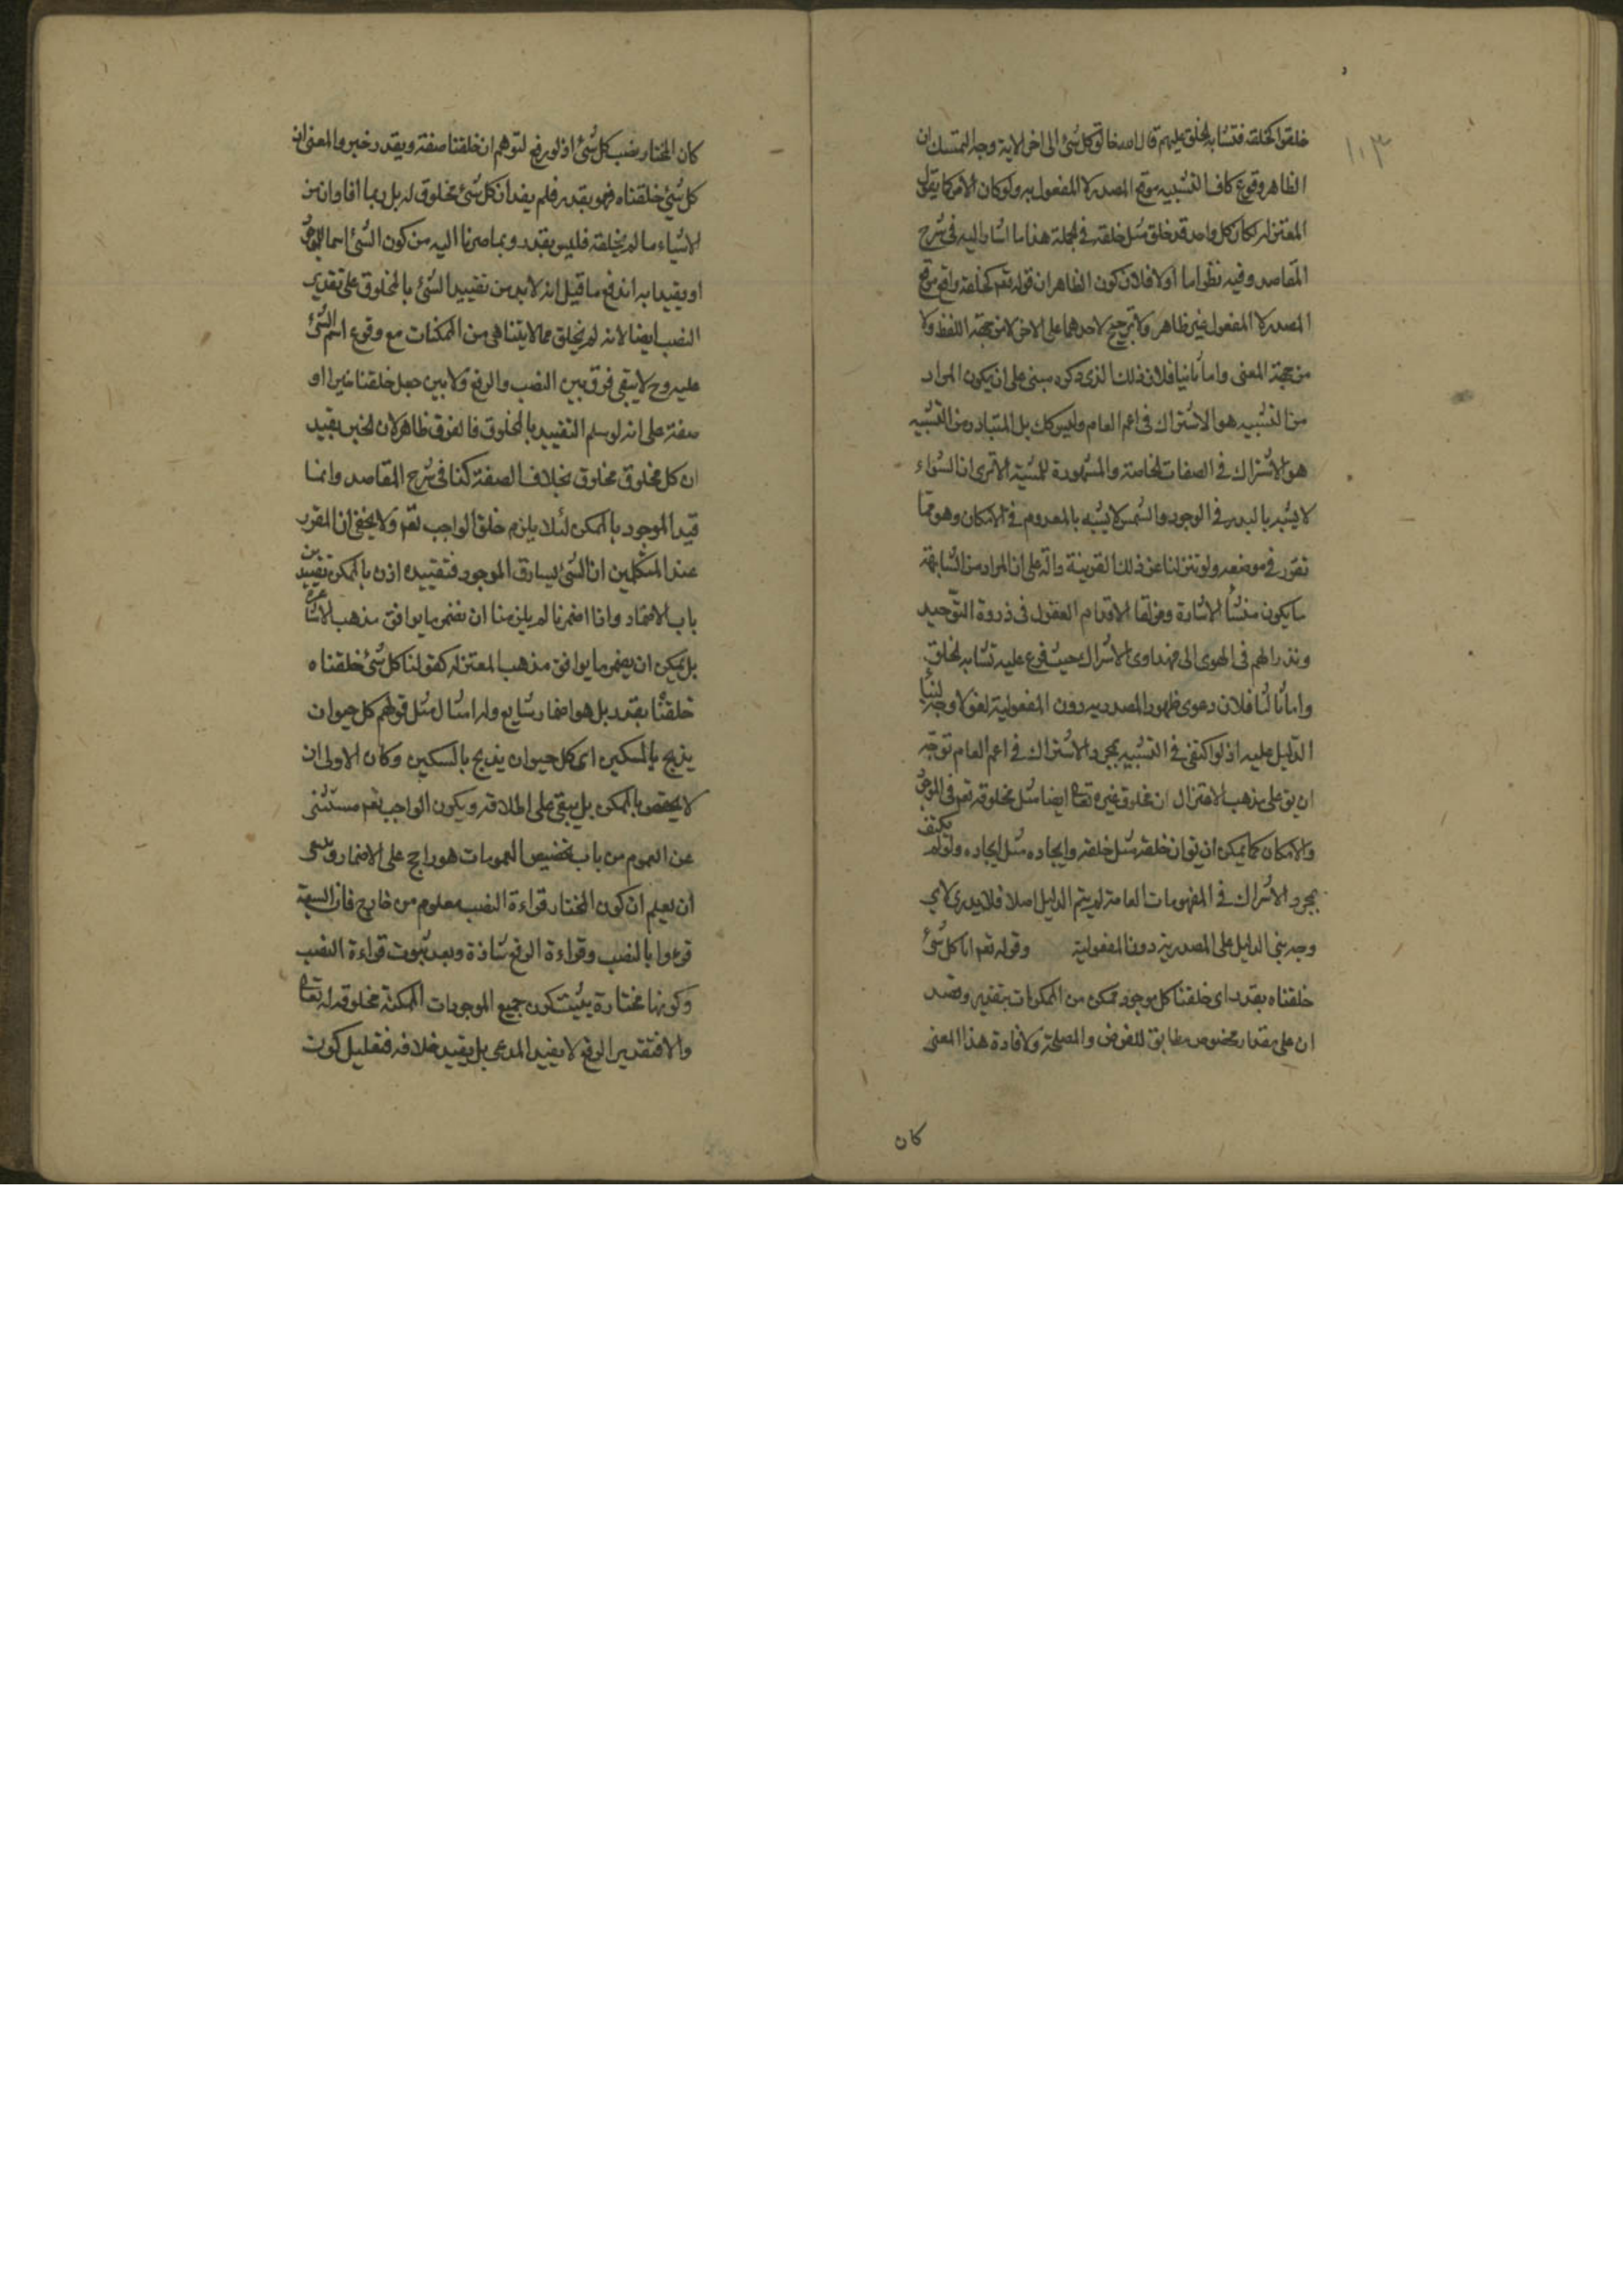 ١٠٣
خلقوا كخلقه فتشابه الخلق عليهم قال الله خالق كل شئ الى اخر الاية وجه التمسك ان
الظاهر وقوع كاف التشبيه موقع المصدر لا المفعول به ولو كان الامر كما يقول
المعتزله لكان كل واحد قد خلق مثل خلقه فى الجملة هذا ما اشار اليه فى شرح
المقاصد وفيه نظر اما اولا فلان كون الظاهر ان قوله تعم كخلقه واقع موقع
المصدر لا المفعول غير ظاهر ولا ترجيح لاحدهما على الاخر لا من جهة اللفظ ولا
من جهة المعنى واما ثانيا فلان ذلك الذى ذكره مبنى على ان يكون المراد
من التشبيه هو الاشتراك فى اعم العام وليس كك بل المتبادر من التشبيه
هو الاشتراك فى الصفات الخاصة والمشهودة للمشبه الا ترى ان السواء
لا يشبه بالبدر فى الوجود والشمس لا يشبه بالمعدوم فى الامكان وهو مما
تقرر فى موضعه ولو تنزلنا عن ذلك القرينة دالة على ان المراد من المشابهة
ما يكون منشأ الاشارة ومزلقا لاقدام العقول فى ذروة التوحيد
ونذرا لهم فى الهوى الى مهداوى الاشراك حيث فرع عليه تشابه الخلق
واما ثالثا فلان دعوى ظهور المصدريه دون المفعولية لغو لا وجه لبناء
الدليل عليه اذ لو اكتفى فى التشبيه بمجرد الاشتراك فى اعم العام توجه
ان يق على مذهب الاعتزال ان مخلوق غيره تعالى ايضا مثل مخلوقه تعم فى الوجود
والامكان كما يمكن ان يق ان خلقه مثل خلقه وايجاده مثل ايجاده ولو لم يكتف
بمجرد الاشراك فى المفهومات العامة لم يتم الدليل اصلا فلا يدرى لاى
وجه بنى الدليل على المصدرية دون المفعولية وقوله تعم انا كل شئ
خلقناه بقدر اى خلقنا كل موجود ممكن من الممكنات بتقدير وقصد
ان على مقدار مخصوص مطابق للغرض والمصلحة ولافادة هذا المعنى
كان
كان المختار نصب كل شئ اذ لو رفع لتوهم ان خلقنا صفة وبقدر خبر والمعنى ان
كل شئ خلقناه فهو بقدر فلم يفد ان كل شئ مخلوق له بل ربما افاد ان من
الاشياء ما لم يخلقه فليس بقدر وبما صرنا اليه من كون الشئ اسما للموجود
او يقيد به اندفع ما قيل انه لابد من تقييد الشئ بالمخلوق على تقدير
النصب ايضا لانه لم يخلق مما لا يتناهى من الممكنات مع وقوع اسم الشئ
عليه وح لا يبقى فرق بين النصب والرفع ولا بين جعل خلقنا خبرا او
صفة على انه لو سلم التقييد بالمخلوق فالفرق ظاهر لان الخبر يفيد
ان كل مخلوق مخلوق بخلاف الصفة كذا فى شرح المقاصد وانما
قيد الموجود بالممكن لئلا يلزم خلق الواجب تعم ولا يخفى ان المقرر
عند المتكلمين ان الشئ يساوق الموجود فتقييده اذن بالممكن تقييد من
باب الاضمار واذا اضمرنا لم يلزمنا ان نضمر ما يوافق مذهب الاشاعرة
بل يمكن ان يضمر ما يوافق مذهب المعتزله كقولنا كل شئ خلقناه
خلقنا بقدر بل هو اضمار شايع وله امثال مثل قولهم كل حيوان
يذبح بالسكين اى كل حيوان يذبح بالسكين وكان الاولى ان
لا يختص بالممكن بل يبقى على اطلاقه ويكون الواجب تعم مستثنى
عن العموم من باب تخصيص العمومات هو راجح على الاضمار
ان يعلم ان كون المختار قراءة النصب معلوم من خارج فان السبعة
قرءوا بالنصب وقراءة الرفع شاذة وبعد ثبوت قراءة النصب
وكونها مختارة يثبت كون جميع الموجودات الممكنة مخلوقه له تعالى
والا فتقدير الرفع لا يفيد المدعى بل يفيد خلافه فتعليل كون